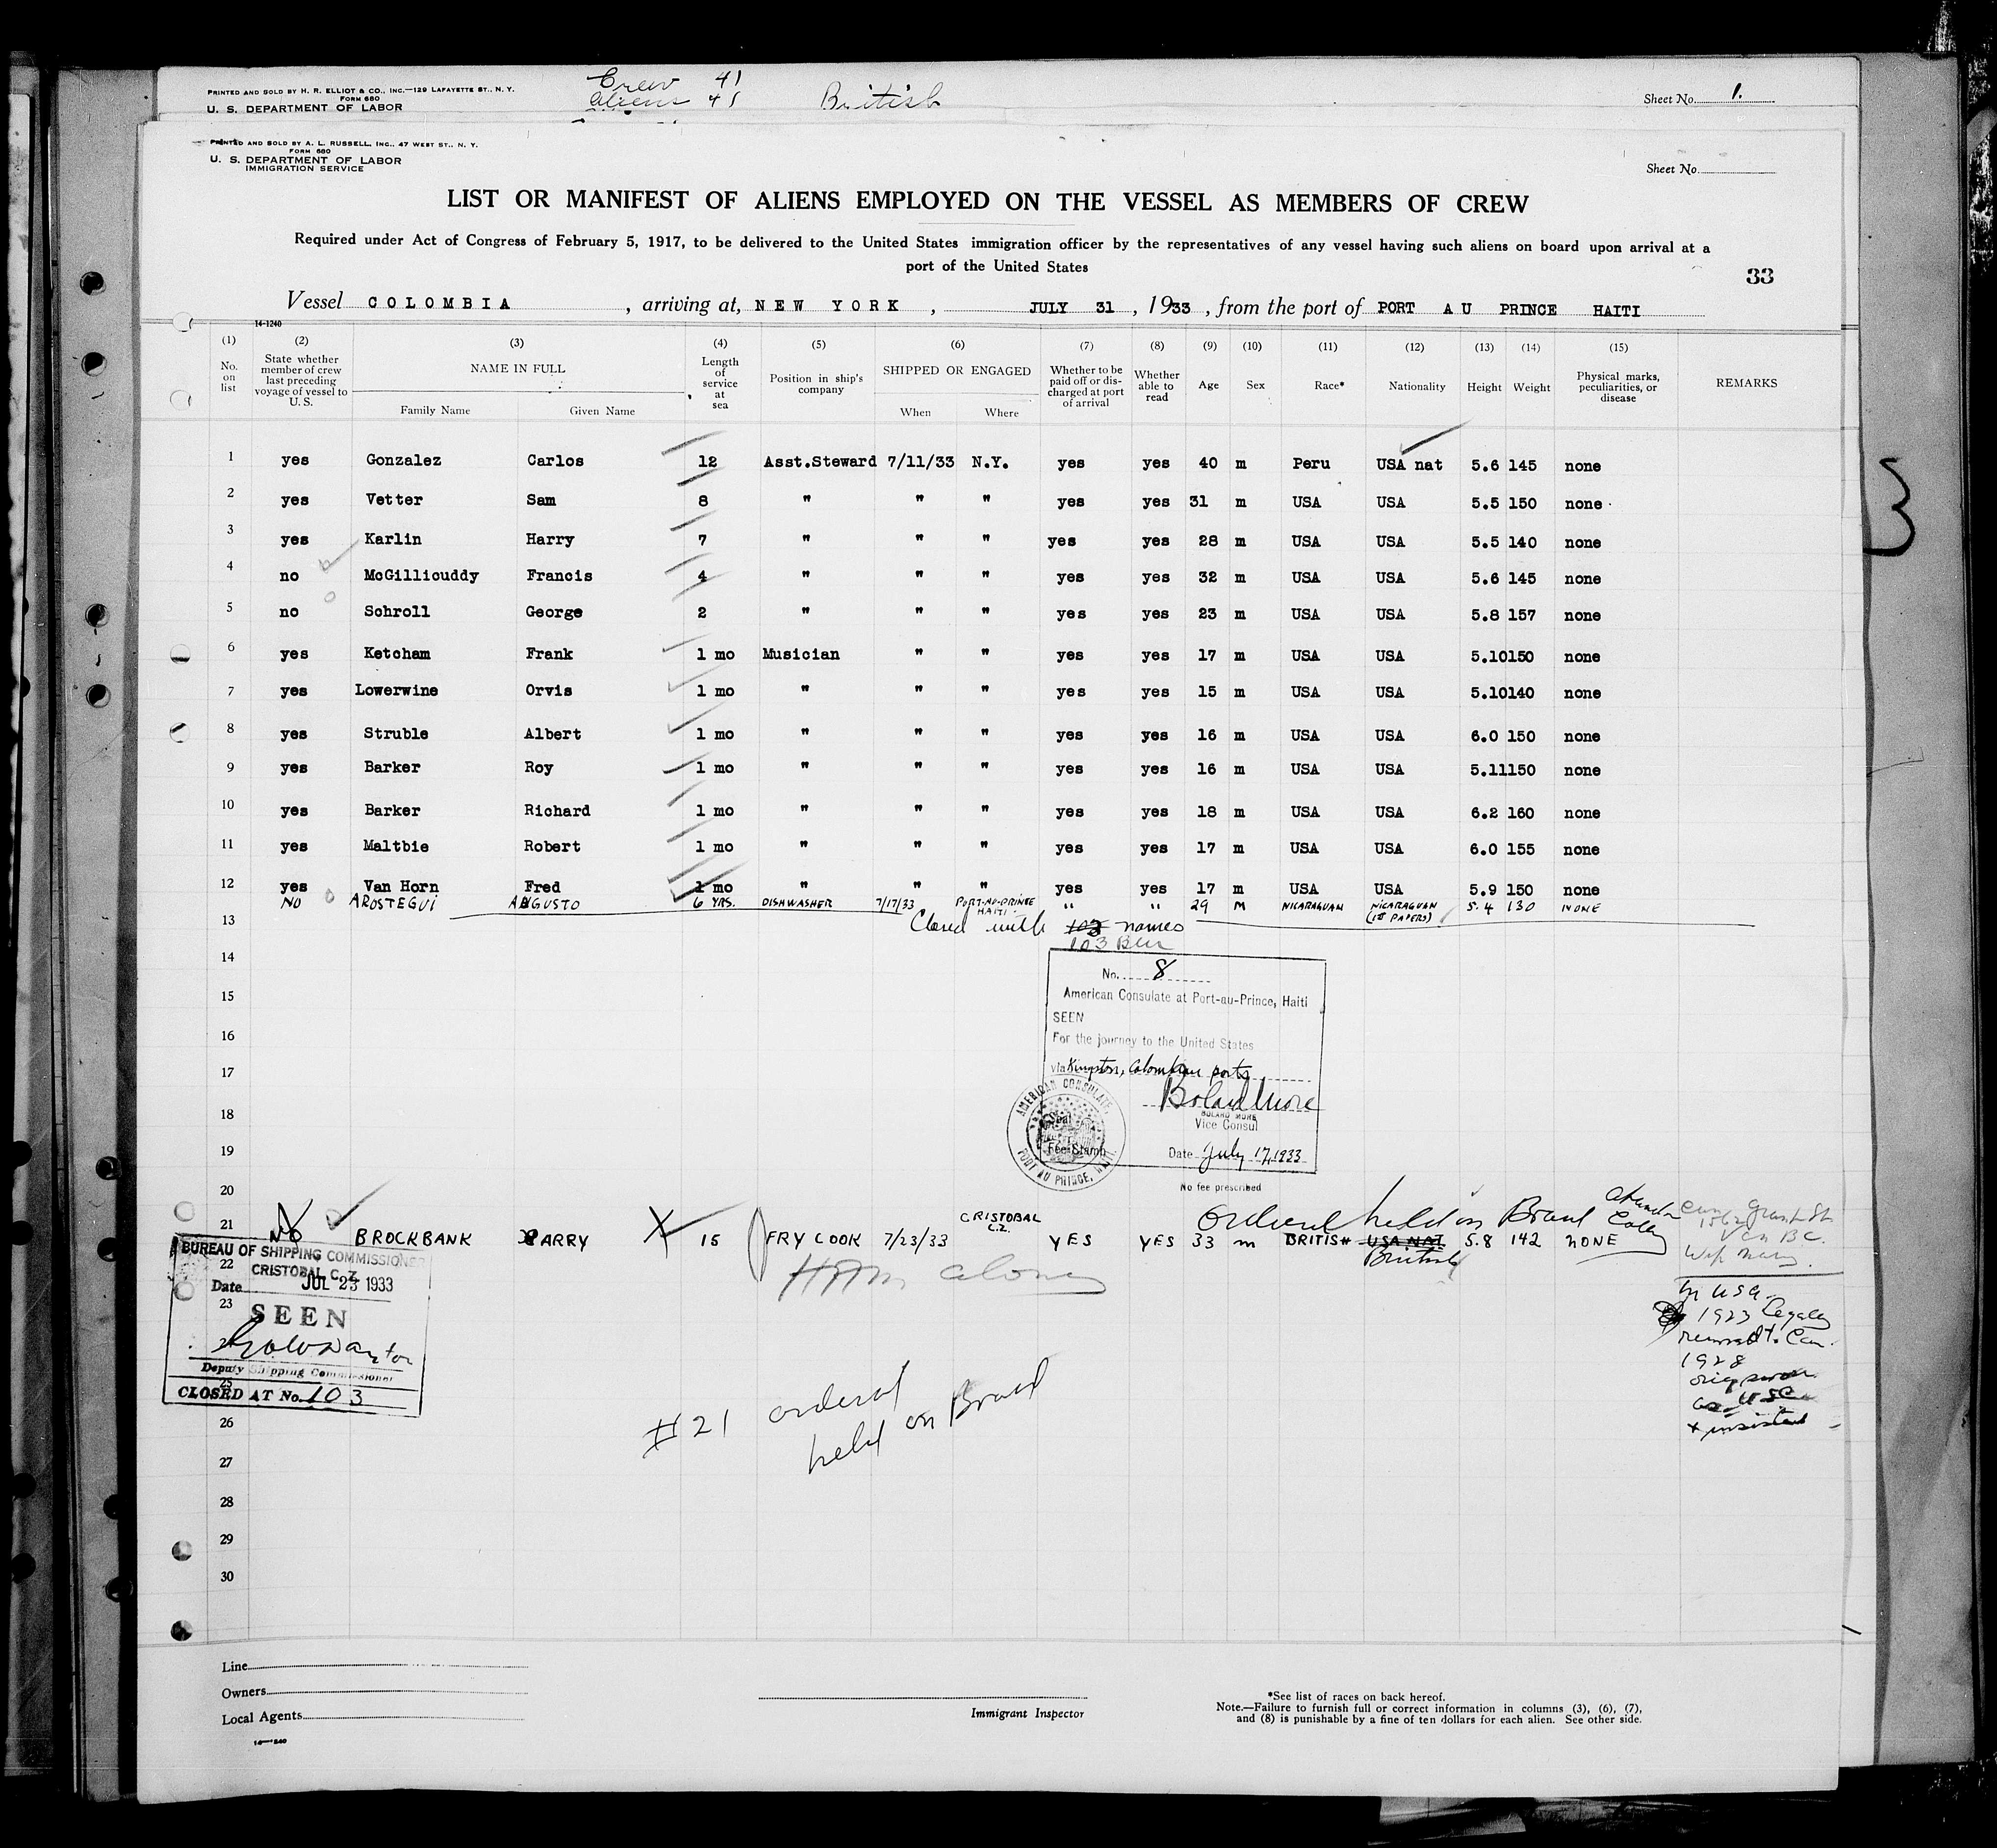 PRINTED AND SOLD BY H. R. ELLIOT & CO., INC.—129 LAFAYETTE ST., N. Y.
FORM 680
U. S. DEPARTMENT OF LABOR
Crew 41
aliens 41
British
Sheet No. 1.
PRINTED AND SOLD BY A. L. RUSSELL, INC., 47 WEST ST., N. Y.
FORM 680
U. S. DEPARTMENT OF LABOR
IMMIGRATION SERVICE
Sheet No.
LIST OR MANIFEST OF ALIENS EMPLOYED ON THE VESSEL AS MEMBERS OF CREW
Required under Act of Congress of February 5, 1917, to be delivered to the United States immigration officer by the representatives of any vessel having such aliens on board upon arrival at a
port of the United States
33
Vessel COLOMBIA, arriving at, NEW YORK, JULY 31, 1933, from the port of PORT AU PRINCE HAITI
14-1240
(1) No. on list
(2) State whether member of crew last preceding voyage of vessel to U. S.
(3) NAME IN FULL Family Name Given Name
(4) Length of service at sea
(5) Position in ship's company
(6) SHIPPED OR ENGAGED When Where
(7) Whether to be paid off or discharged at port of arrival
(8) Whether able to read
(9) Age
(10) Sex
(11) Race*
(12) Nationality
(13) Height
(14) Weight
(15) Physical marks, peculiarities, or disease
REMARKS
1 yes Gonzalez Carlos 12 Asst.Steward 7/11/33 N.Y. yes yes 40 m Peru USA nat 5.6 145 none
2 yes Vetter Sam 8 " " " yes yes 31 m USA USA 5.5 150 none
3 yes Karlin Harry 7 " " " yes yes 28 m USA USA 5.5 140 none
4 no McGillicuddy Francis 4 " " " yes yes 32 m USA USA 5.6 145 none
5 no Schroll George 2 " " " yes yes 23 m USA USA 5.8 157 none
6 yes Ketcham Frank 1 mo Musician " " yes yes 17 m USA USA 5.10 150 none
7 yes Lowerwine Orvis 1 mo " " " yes yes 15 m USA USA 5.10 140 none
8 yes Struble Albert 1 mo " " " yes yes 16 m USA USA 6.0 150 none
9 yes Barker Roy 1 mo " " " yes yes 16 m USA USA 5.11 150 none
10 yes Barker Richard 1 mo " " " yes yes 18 m USA USA 6.2 160 none
11 yes Maltbie Robert 1 mo " " " yes yes 17 m USA USA 6.0 155 none
12 yes Van Horn Fred 1 mo " " " yes yes 17 m USA USA 5.9 150 none
NO AROSTEGUI AUGUSTO 6 YRS. DISHWASHER 7/17/33 PORT-AU-PRINCE HAITI " " 29 M NICARAGUAN NICARAGUAN (1ST PAPERS) 5.4 130 NONE
13
Closed with 103 names
103
14
No. 8
American Consulate at Port-au-Prince, Haiti
15
SEEN
16
For the journey to the United States
17
via Kingston, Colombian ports
Boland More
18
BOLAND MORE
Vice Consul
AMERICAN CONSULATE, PORT AU PRINCE, HAITI
Seal
Fee Stamp
19
Date July 17, 1933
No fee prescribed
20
Ordered held on Board
21 No BROCKBANK HARRY 15 FRY COOK 7/23/33 CRISTOBAL C.Z. YES YES 33 m BRITISH USA NAT 5.8 142 NONE
British
22
BUREAU OF SHIPPING COMMISSIONER
CRISTOBAL C. Z.
Date JUL 23 1933
23
SEEN
24
Deputy Shipping Commissioner
25
CLOSED AT No. 103
In USA
1923 Legally
1928
as USC
+ insisted
#21 ordered
held on Board
26
27
28
29
30
Line
Owners
Local Agents
Immigrant Inspector
*See list of races on back hereof.
Note.—Failure to furnish full or correct information in columns (3), (6), (7),
and (8) is punishable by a fine of ten dollars for each alien. See other side.